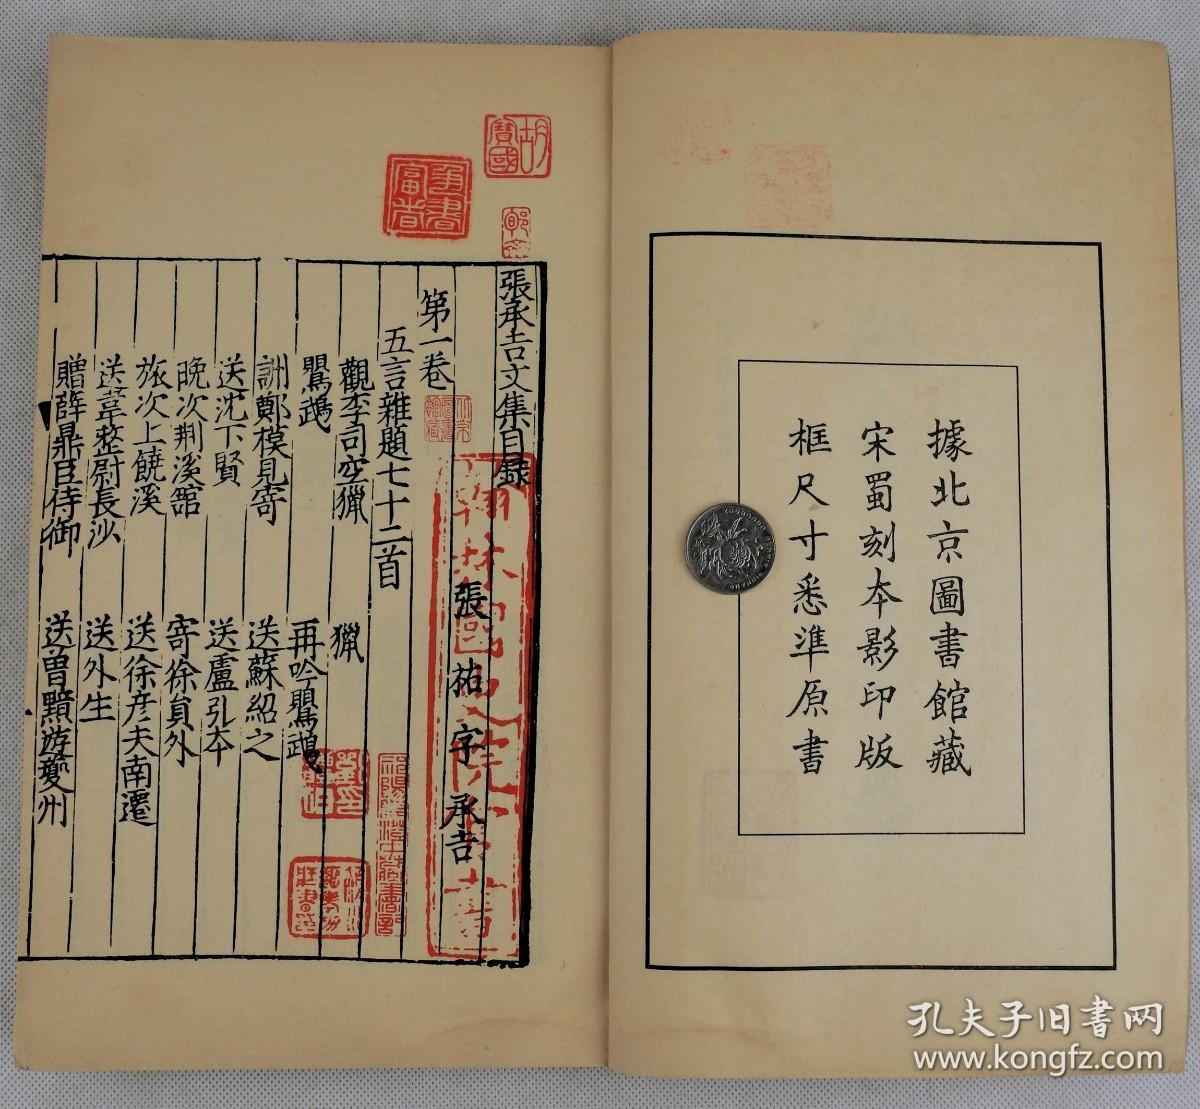 據北京圖書館藏
宋蜀刻本影印版
框尺寸悉準原書
張承吉文集目錄
張祜字承吉
第一卷
五言雜題七十二首
觀李司空獵 獵
鸎鵡 再吟鸎鵡
詶鄭模見寄 送蘇紹之
送沈下賢 送盧弘本
晚次荆溪館 寄徐員外
旅次上饒溪 送徐彦夫南遷
送韋整尉長沙 送外生
贈薛鼎臣侍御 送曾黯遊夔州
翰林國史院官書
孔夫子旧书网
www.kongfz.com